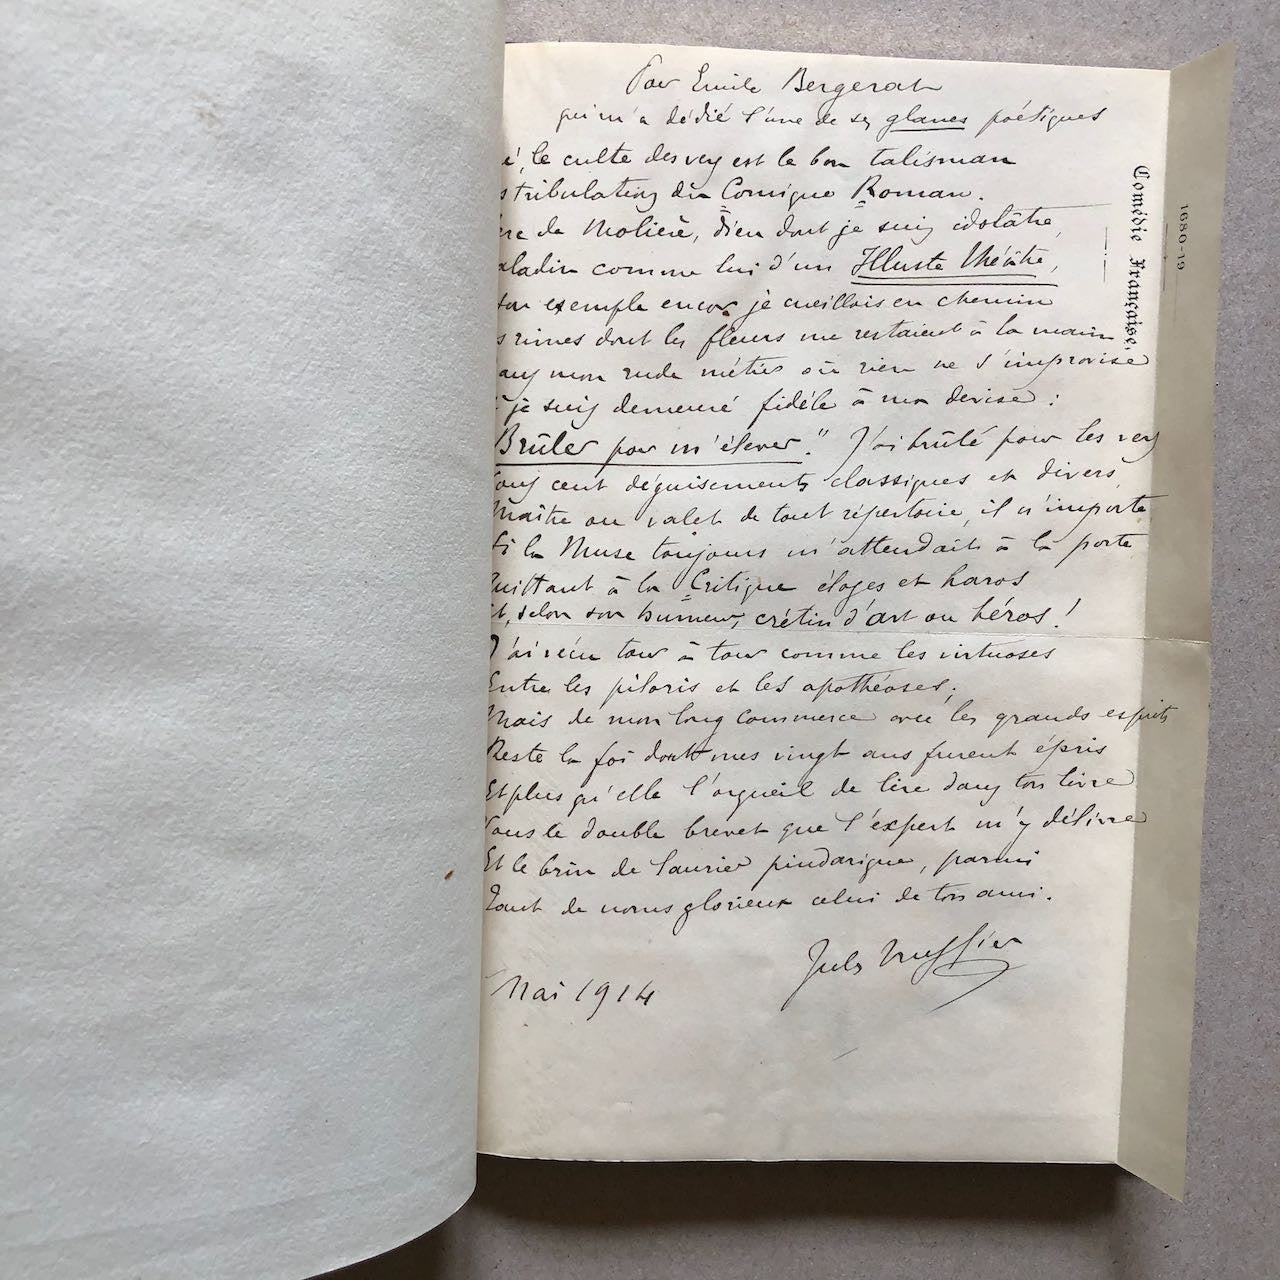 Pour Emile Bergerat
qui m'a dédié l'une de ses glanes poétiques
le culte des vers est le bon talisman
tribulations du Comique Roman.
de Molière, dieu dont je suis idolâtre,
comme lui d'un Illustre Théâtre,
son exemple encor je cueillais en chemin
rimes dont les fleurs me restaient à la main
mon rude métier où rien ne s'improvise
je suis demeuré fidèle à ma devise :
Brûler pour m'élever." J'ai brûlé pour les vers
Sous cent déguisements classiques et divers
Maître ou valet de tout répertoire, il n'importe
Si la Muse toujours m'attendait à la porte
Quittant à la Critique éloges et haros
Et, selon son humeur, crétin d'art ou héros !
J'ai vécu tour à tour comme les virtuoses
Entre les piloris et les apothéoses ;
Mais de mon long commerce avec les grands esprits
Reste la foi dont mes vingt ans furent épris
Et plus qu'elle l'orgueil de lire dans ton livre
Sous le double brevet que l'expert m'y délivre
Et le brin de laurier pindarique, parmi
Tant de noms glorieux celui de ton ami.
Jules Truffier
Mai 1914
Comédie Française.
1680-19